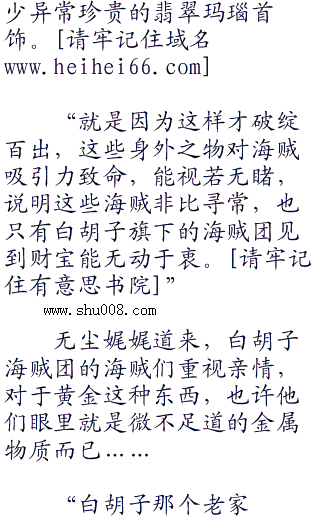 少异常珍贵的翡翠玛瑙首
饰。[请牢记住域名
www.heihei66.com]
“就是因为这样才破绽
百出，这些身外之物对海贼
吸引力致命，能视若无睹，
说明这些海贼非比寻常，也
只有白胡子旗下的海贼团见
到财宝能无动于衷。[请牢记
住有意思书院]”
www.shu008.com
无尘娓娓道来，白胡子
海贼团的海贼们重视亲情，
对于黄金这种东西，也许他
们眼里就是微不足道的金属
物质而已……
“白胡子那个老家